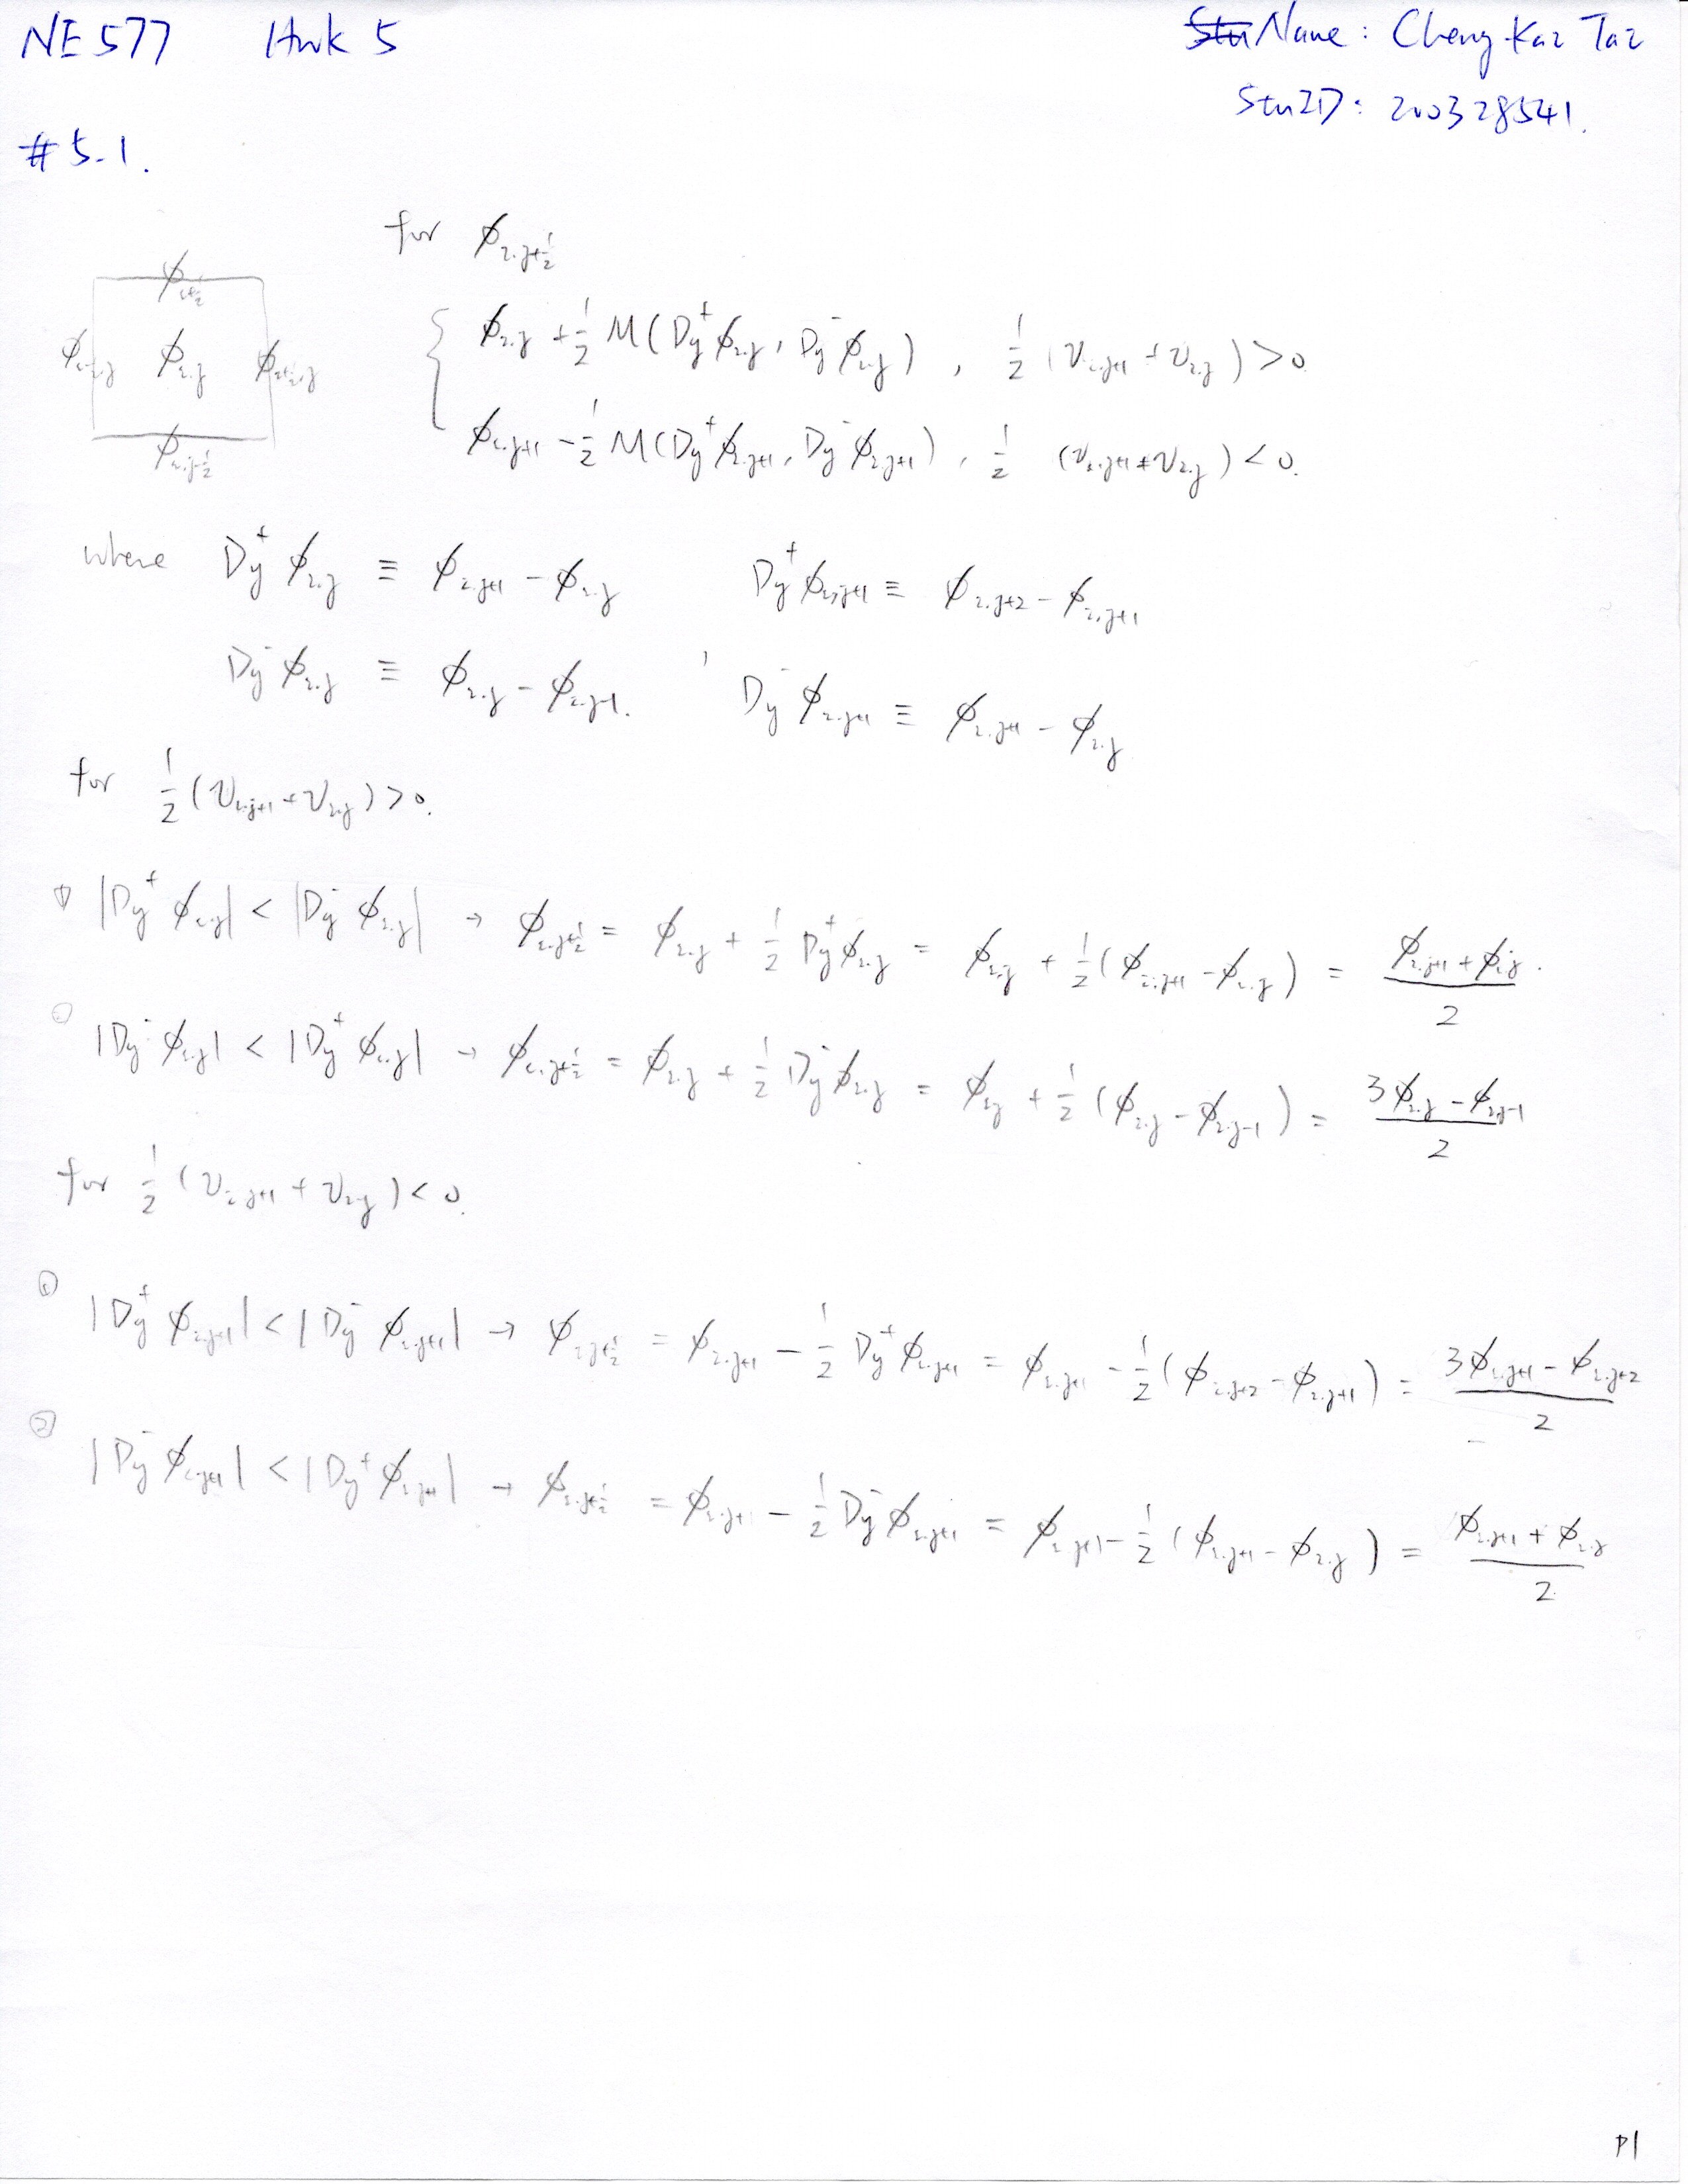 NE 577 Hwk 5 Name: Cheng-Kai Tai
Stu ID: 200328541.
#5-1.
for ϕ_{i,j+1/2}
ϕ_{i,j} + 1/2 M(D_y^+ ϕ_{i,j}, D_y^- ϕ_{i,j}), 1/2 (v_{i,j+1} + v_{i,j}) > 0.
ϕ_{i,j+1} - 1/2 M(D_y^+ ϕ_{i,j+1}, D_y^- ϕ_{i,j+1}), 1/2 (v_{i,j+1} + v_{i,j}) < 0.
ϕ_{i,j}
ϕ_{i,j-1/2}
where D_y^+ ϕ_{i,j} ≡ ϕ_{i,j+1} - ϕ_{i,j} D_y^+ ϕ_{i,j+1} ≡ ϕ_{i,j+2} - ϕ_{i,j+1}
D_y^- ϕ_{i,j} ≡ ϕ_{i,j} - ϕ_{i,j-1}. , D_y^- ϕ_{i,j+1} ≡ ϕ_{i,j+1} - ϕ_{i,j}
for 1/2 (v_{i,j+1} + v_{i,j}) > 0.
① |D_y^+ ϕ_{i,j}| < |D_y^- ϕ_{i,j}| → ϕ_{i,j+1/2} = ϕ_{i,j} + 1/2 D_y^+ ϕ_{i,j} = ϕ_{i,j} + 1/2 (ϕ_{i,j+1} - ϕ_{i,j}) = (ϕ_{i,j+1} + ϕ_{i,j})/2.
② |D_y^- ϕ_{i,j}| < |D_y^+ ϕ_{i,j}| → ϕ_{i,j+1/2} = ϕ_{i,j} + 1/2 D_y^- ϕ_{i,j} = ϕ_{i,j} + 1/2 (ϕ_{i,j} - ϕ_{i,j-1}) = (3ϕ_{i,j} - ϕ_{i,j-1})/2
for 1/2 (v_{i,j+1} + v_{i,j}) < 0.
① |D_y^+ ϕ_{i,j+1}| < |D_y^- ϕ_{i,j+1}| → ϕ_{i,j+1/2} = ϕ_{i,j+1} - 1/2 D_y^+ ϕ_{i,j+1} = ϕ_{i,j+1} - 1/2 (ϕ_{i,j+2} - ϕ_{i,j+1}) = (3ϕ_{i,j+1} - ϕ_{i,j+2})/2
② |D_y^- ϕ_{i,j+1}| < |D_y^+ ϕ_{i,j+1}| → ϕ_{i,j+1/2} = ϕ_{i,j+1} - 1/2 D_y^- ϕ_{i,j+1} = ϕ_{i,j+1} - 1/2 (ϕ_{i,j+1} - ϕ_{i,j}) = (ϕ_{i,j+1} + ϕ_{i,j})/2
P1